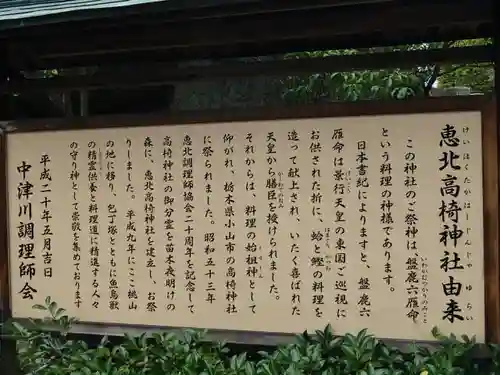 恵北高椅神社由来
この神社のご祭神は 盤鹿六雁命
という料理の神様であります。
日本書紀によりますと、盤鹿六
雁命は景行天皇の東国ご巡視に
お供された折に、蛤と鰹の料理を
造って献上され、いたく喜ばれた
天皇から膳臣を授けられました。
それからは、料理の始祖神として
仰がれ、栃木県小山市の高椅神社
に祭られました。昭和五十三年
恵北調理師協会二十周年を記念して
高椅神社の御分霊を苗木夜明けの
森に、恵北高椅神社を建立し、お祭
りしました。平成九年にここ桃山
の地に移り、包丁塚とともに魚鳥獣
の精霊供養と料理道に精進する人々
の守り神として崇敬を集めております
平成二十年五月吉日
中津川調理師会